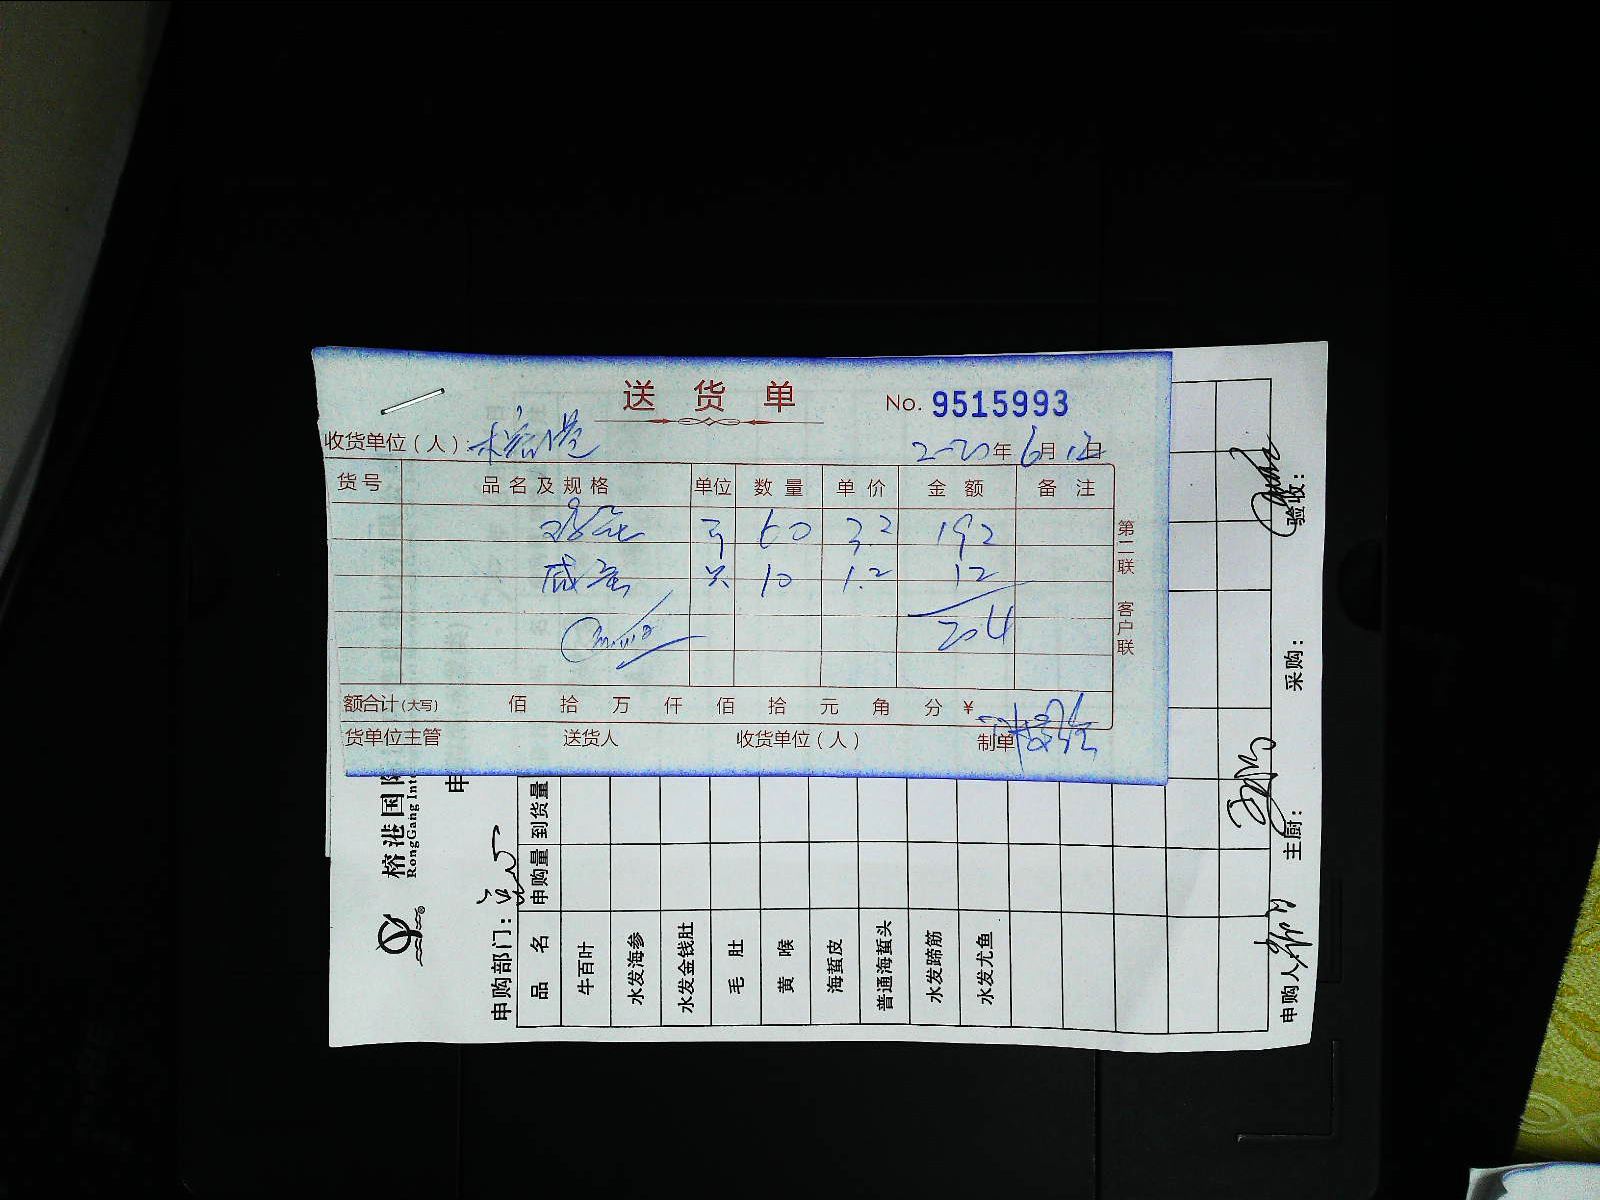 送货单
No. 9515993
收货单位（人）：榕港
2020年6月12日
货号 品名及规格 单位 数量 单价 金额 备注
鸡蛋 斤 60 3.2 192
咸蛋 只 10 1.2 12
204
额合计(大写) 佰 拾 万 仟 佰 拾 元 角 分 ¥
货单位主管 送货人 收货单位（人） 制单
第二联 客户联
榕港国
RongGang Int
申
申购部门：
品名 申购量 到货量
牛百叶
水发海参
水发金钱肚
毛肚
黄喉
海蜇皮
普通海蜇头
水发蹄筋
水发尤鱼
申购人 主厨： 采购： 验收：